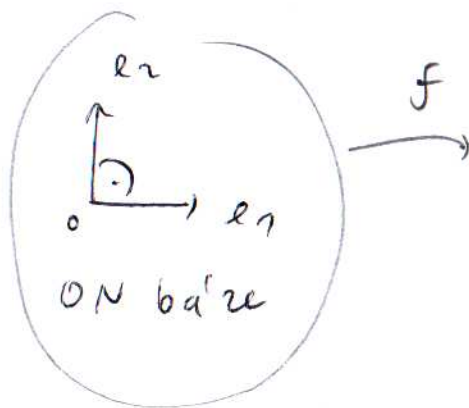 e2
f
o
e1
ON báze